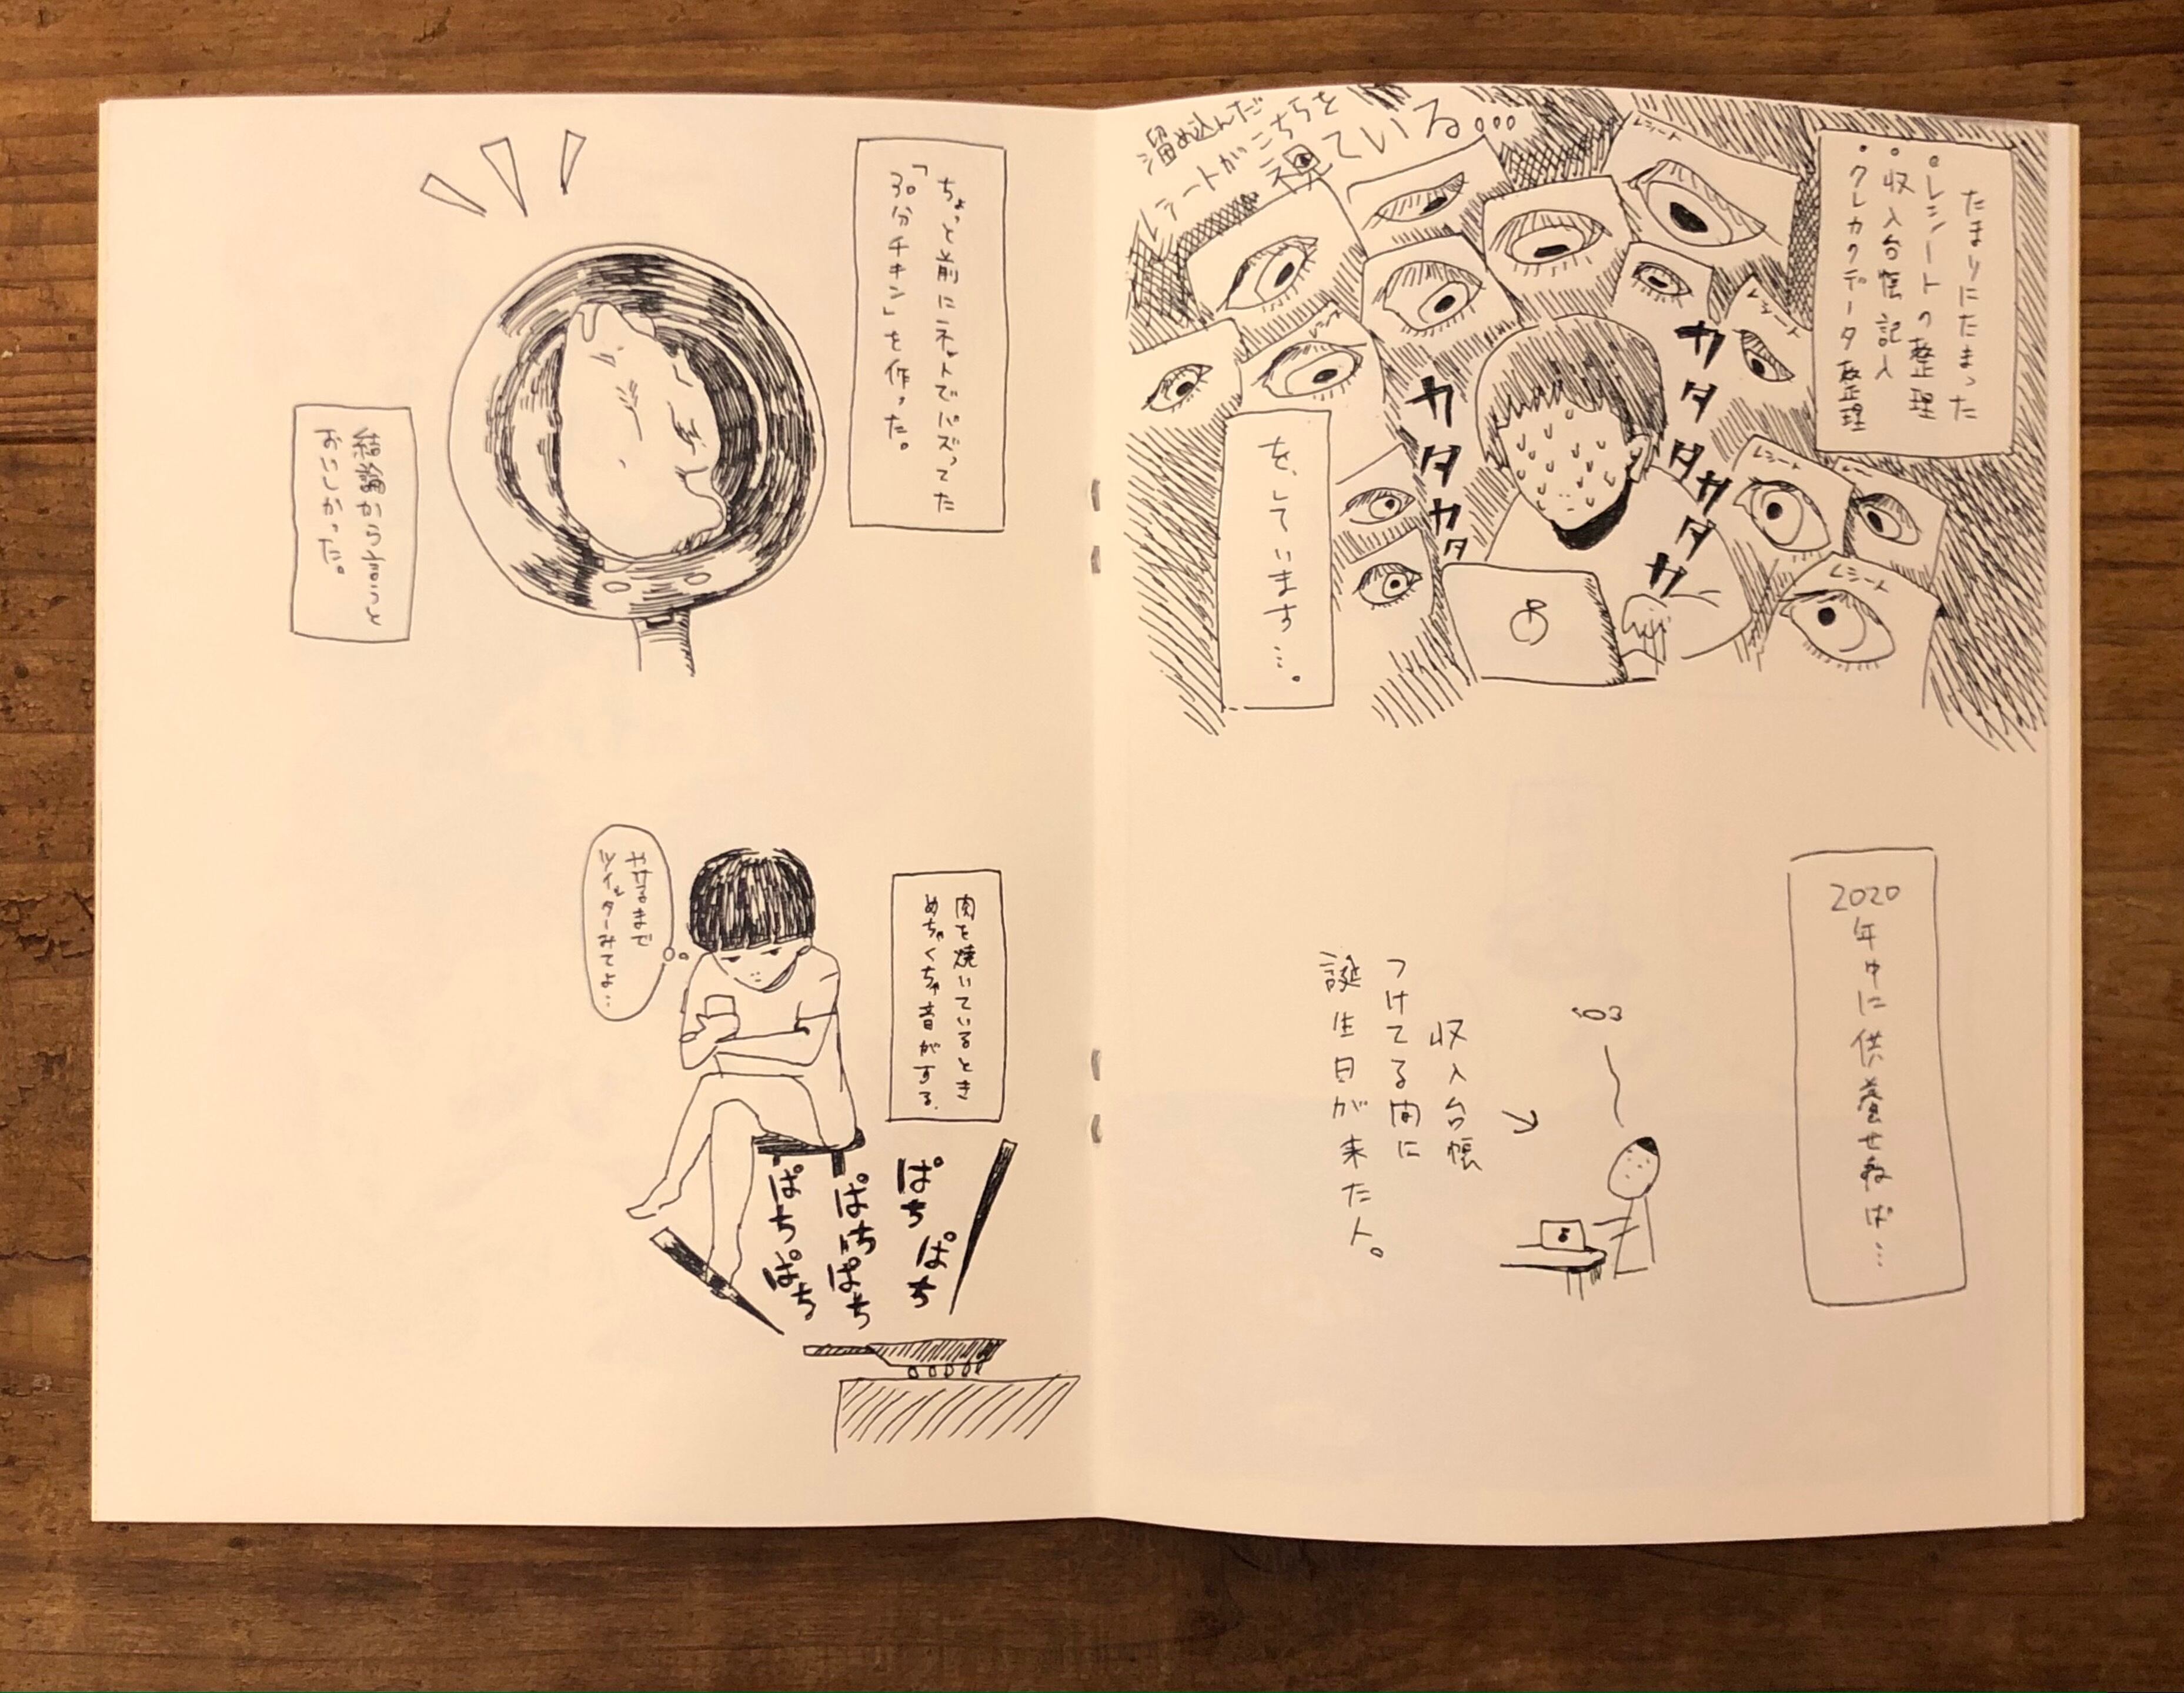 たまりにたまった
・レシートの整理
・収入台帳 記入
・クレカクデータ整理
溜め込んだ
レシートがこちらを
視ている...
レシート
レシート
レシート
レシート
レシート
レシート
カタカタ
カタタタカタカ
を、しています…。
2020年中に供養せねば…
収入台帳
つけてる間に
誕生日が来た人。
ちょっと前にネットでバズってた
「30分チキン」を作った。
結論から言うと
おいしかった。
肉を焼いているとき
めちゃくちゃ音がする。
やけるまで
ツイッターみてよ…
ぱちぱち
ぱちぱち
ぱちぱち